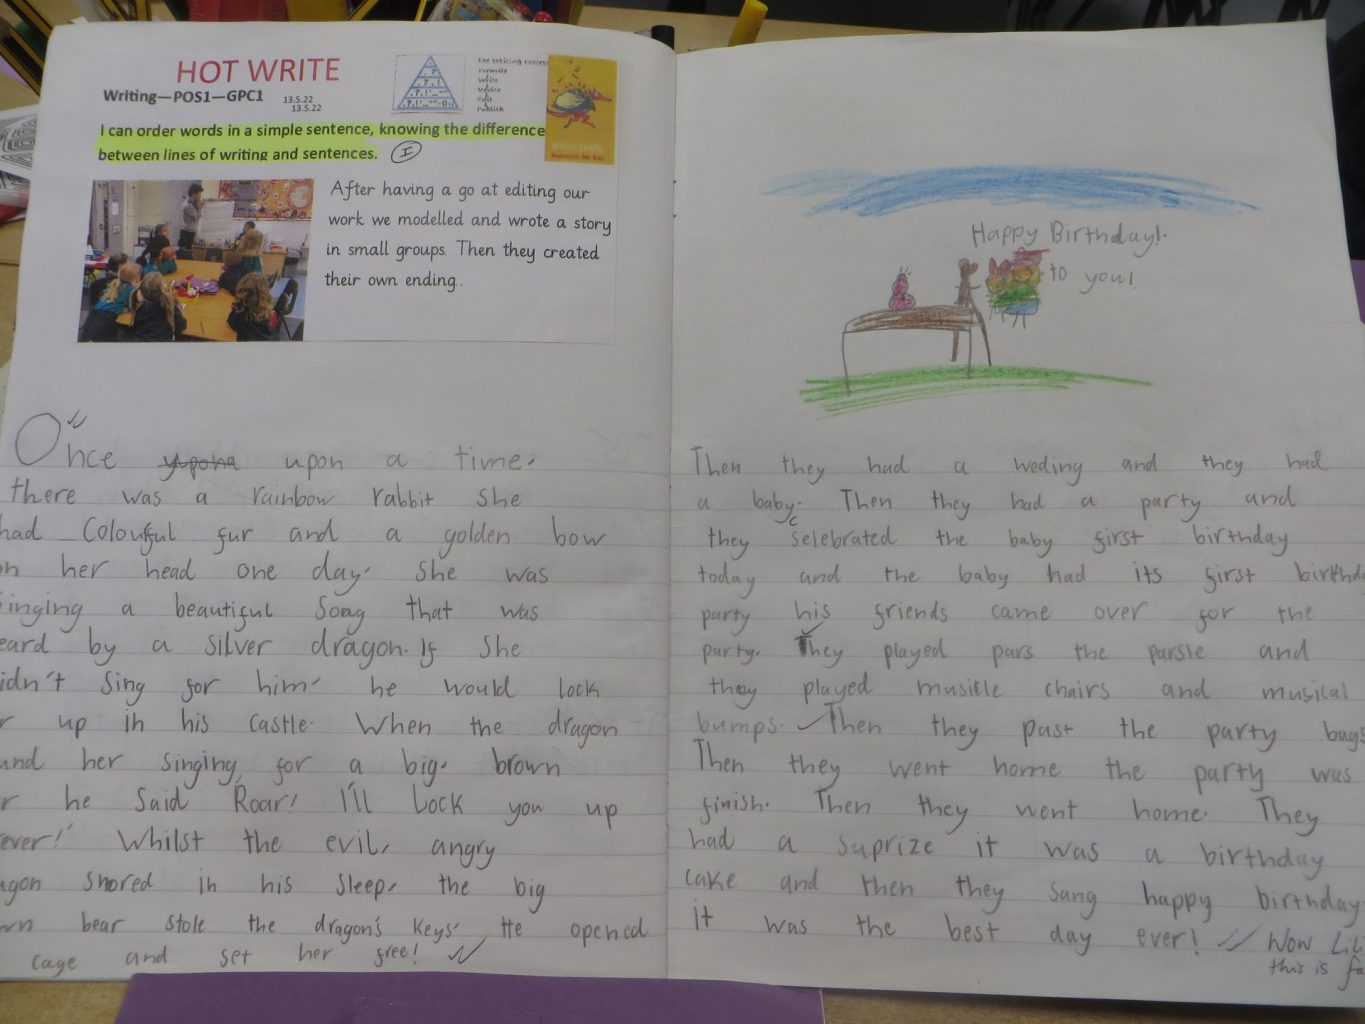 HOT WRITE
Writing—POS1—GPC1 13.5.22
13.5.22
I can order words in a simple sentence, knowing the difference
between lines of writing and sentences. I
The Writing Process
Prewrite
Write
Revise
Edit
Publish
After having a go at editing our
work we modelled and wrote a story
in small groups. Then they created
their own ending..
Once upon a time,
there was a rainbow rabbit she
had Colourful fur and a golden bow
on her head one day. She was
singing a beautiful Song that was
eard by a silver dragon. If She
idn't Sing for him, he would lock
r up in his castle. When the dragon
und her singing, for a big, brown
r he Said Roar! I'll Lock you up
ever!' Whilst the evil, angry
agon Snored in his Sleep, the big
wn bear stole the dragon's keys. He opened
cage and set her free!
Happy Birthday!
to you!
Then they had a weding and they had
a baby. Then they had a party and
they selebrated the baby first birthday
today and the baby had its first birthda
party his friends came over for the
party. They played pars the parsle and
they played musicle chairs and musical
bumps. Then they past the party bags
Then they went home the party was
finish. Then they went home. They
had a suprize it was a birthday
cake and then they sang happy birthday
it was the best day ever! Wow
this is